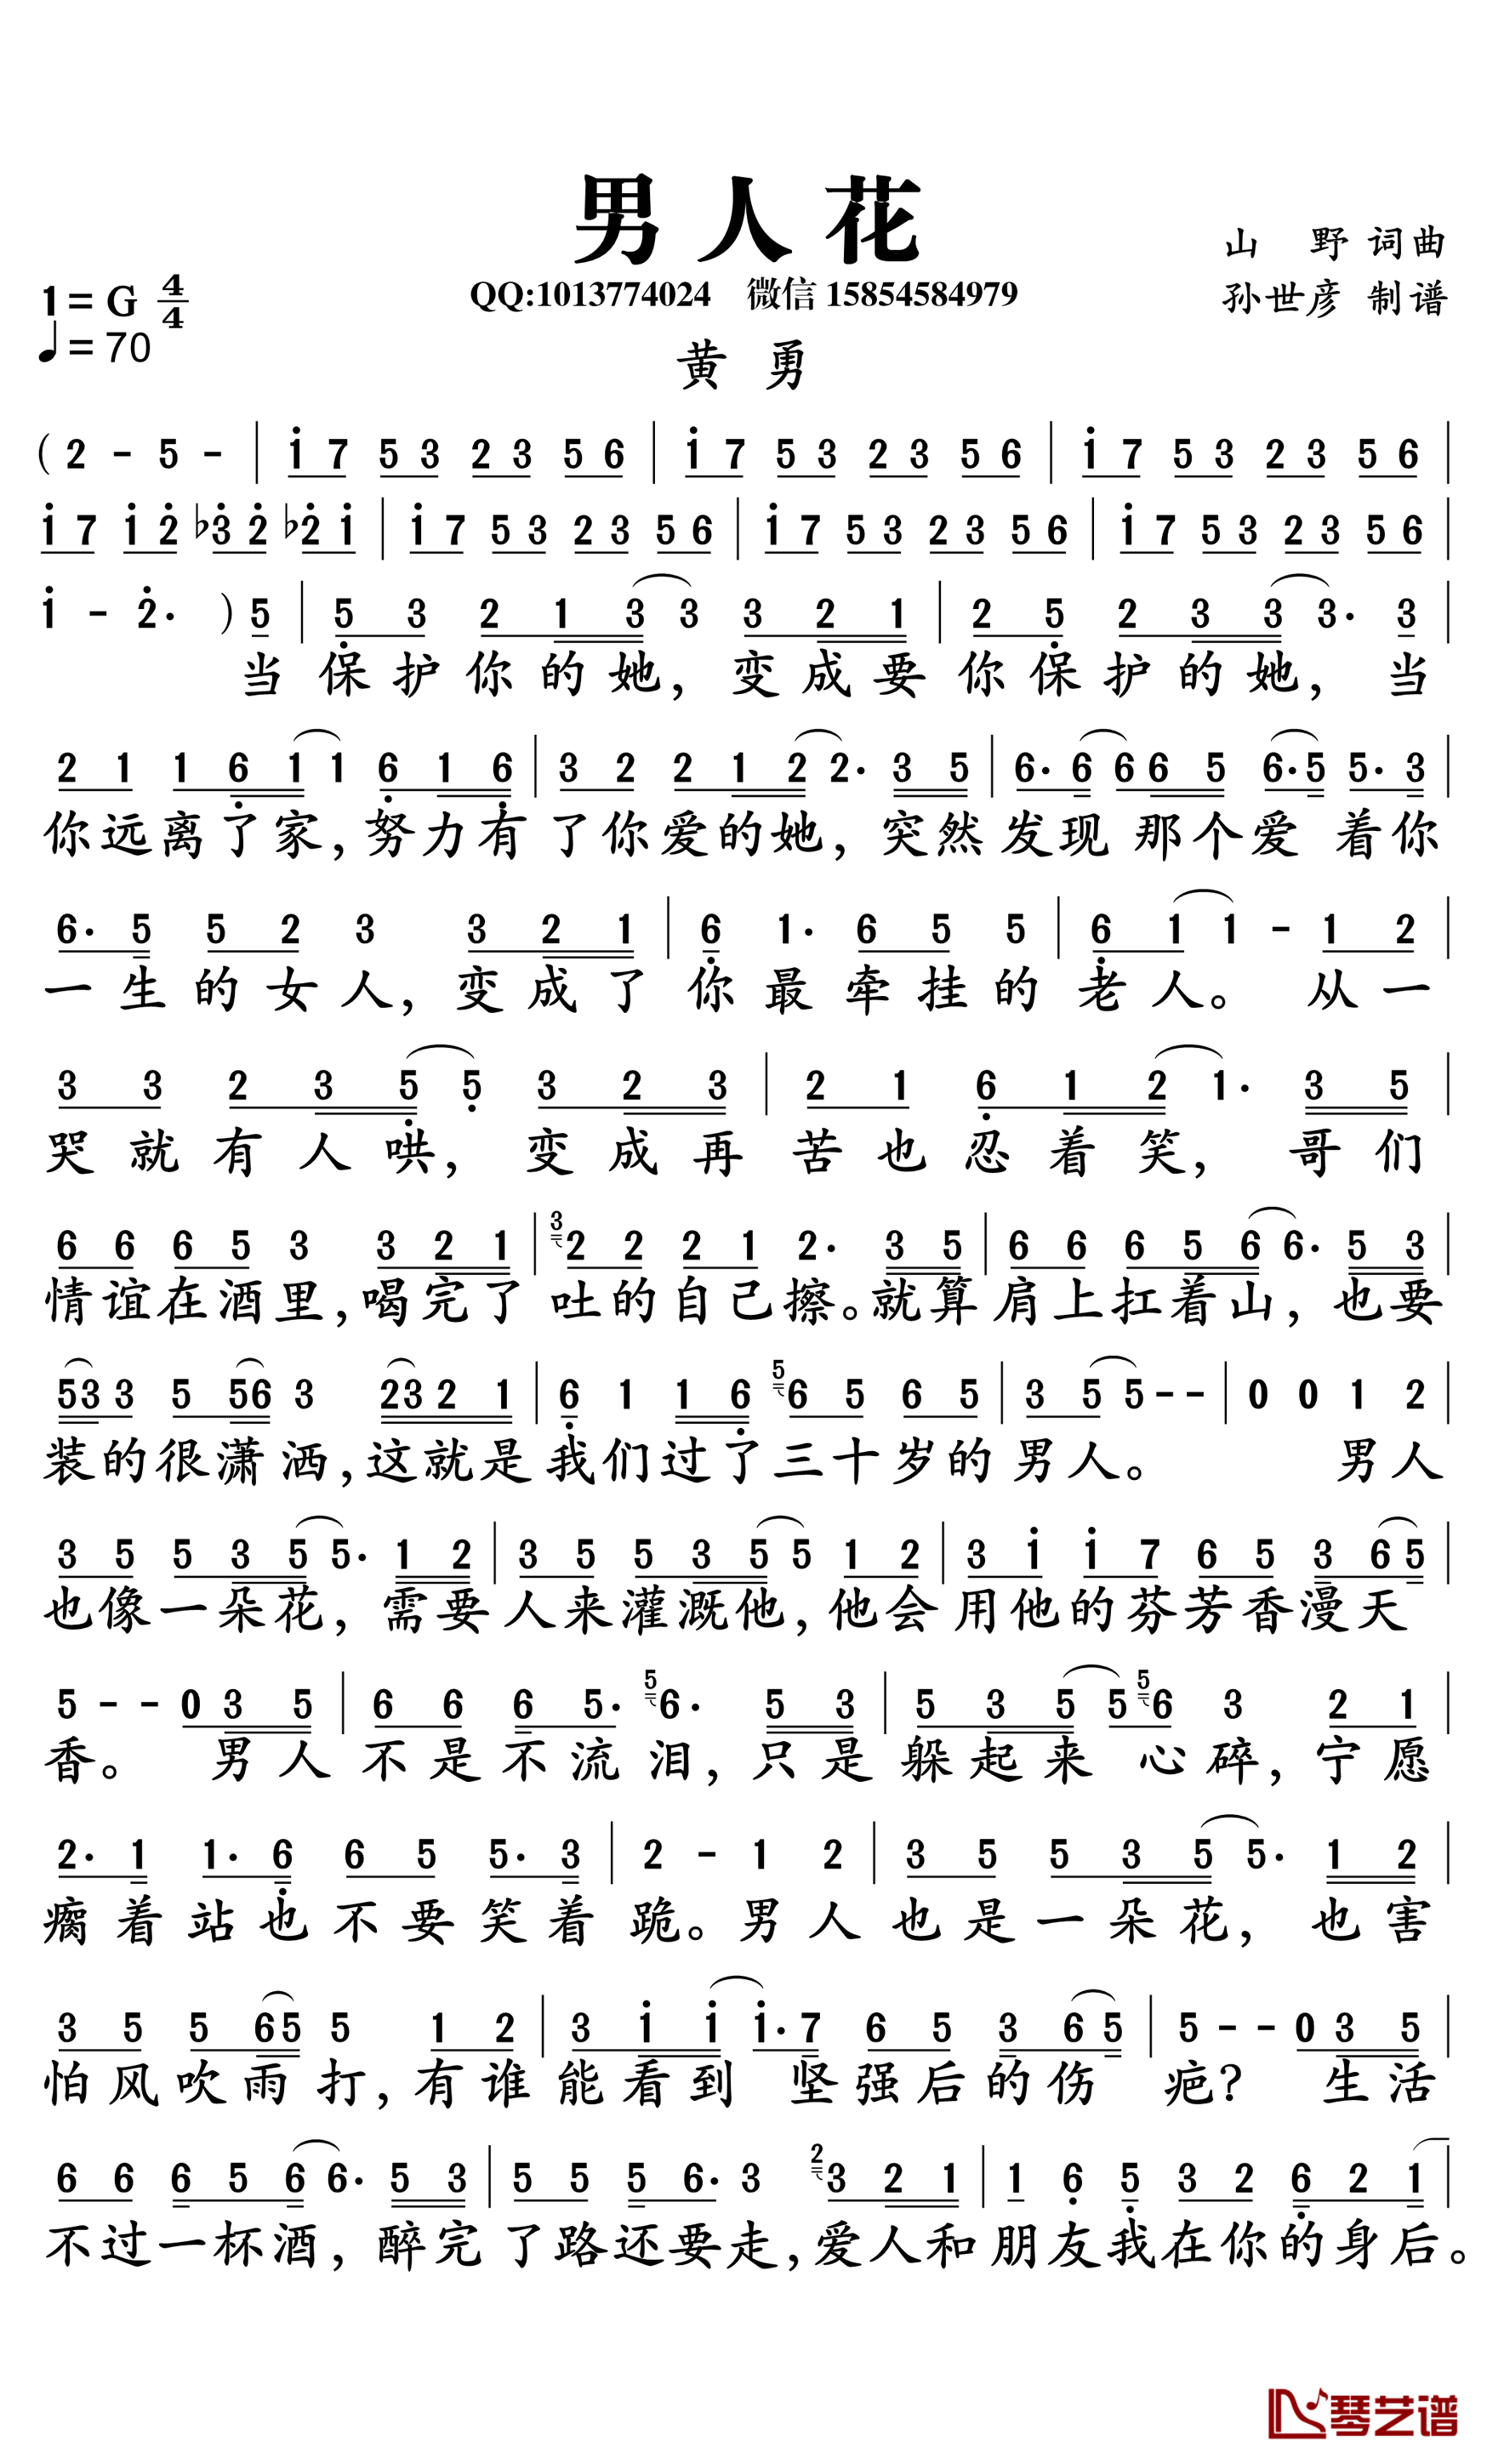 男人花
山 野 词曲
1= G 4/4
QQ:1013774024 微信 15854584979
孙世彦 制谱
♩= 70
黄 勇
( 2 - 5 - | i 7 5 3 2 3 5 6 | i 7 5 3 2 3 5 6 | i 7 5 3 2 3 5 6 |
i 7 i 2 ♭3 2 ♭2 i | i 7 5 3 2 3 5 6 | i 7 5 3 2 3 5 6 | i 7 5 3 2 3 5 6 |
i - 2· ) 5 | 5 3 2 1 3 3 3 2 1 | 2 5 2 3 3 3· 3 |
当 保护你的她，变成要你保护的她， 当
2 1 1 6 1 1 6 1 6 | 3 2 2 1 2 2· 3 5 | 6· 6 6 6 5 6· 5 5· 3 |
你远离了家，努力有了你爱的她，突然发现 那个爱 着你
6· 5 5 2 3 3 2 1 | 6 1· 6 5 5 | 6 1 1 - 1 2 |
一生的女人，变成了 你最牵挂的老人。 从一
3 3 2 3 5 5 3 2 3 | 2 1 6 1 2 1· 3 5 |
哭就有人哄，变成再苦也忍着笑，哥们
6 6 6 5 3 3 2 1 | 3 2 2 2 1 2· 3 5 | 6 6 6 5 6 6· 5 3 |
情谊在酒里，喝完了 吐的自己擦。就算肩上扛着山，也要
5 3 3 5 5 6 3 2 3 2 1 | 6 1 1 6 5 6 5 6 5 | 3 5 5 - - | 0 0 1 2 |
装的很潇洒，这就是我们过了三十岁的男人。 男人
3 5 5 3 5 5· 1 2 | 3 5 5 3 5 5 1 2 | 3 i i 7 6 5 3 6 5 |
也像一朵花，需要人来灌溉他，他会用他的芬芳香漫天
5 - - 0 3 5 | 6 6 6 5· 5 6· 5 3 | 5 3 5 5 5 6 3 2 1 |
香。 男人不是不流泪，只是躲起来 心碎，宁愿
2· 1 1· 6 6 5 5· 3 | 2 - 1 2 | 3 5 5 3 5 5· 1 2 |
瘸着站也不要笑着跪。男人也是一朵花，也害
3 5 5 6 5 5 1 2 | 3 i i i· 7 6 5 3 6 5 | 5 - - 0 3 5 |
怕风吹雨打，有谁能看到 坚强后的伤 疤? 生活
6 6 6 5 6 6· 5 3 | 5 5 5 6· 3 2 3 2 1 | 1 6 5 3 2 6 2 1 |
不过一杯酒，醉完了路还要走，爱人和朋友我在你的身后。
琴艺谱